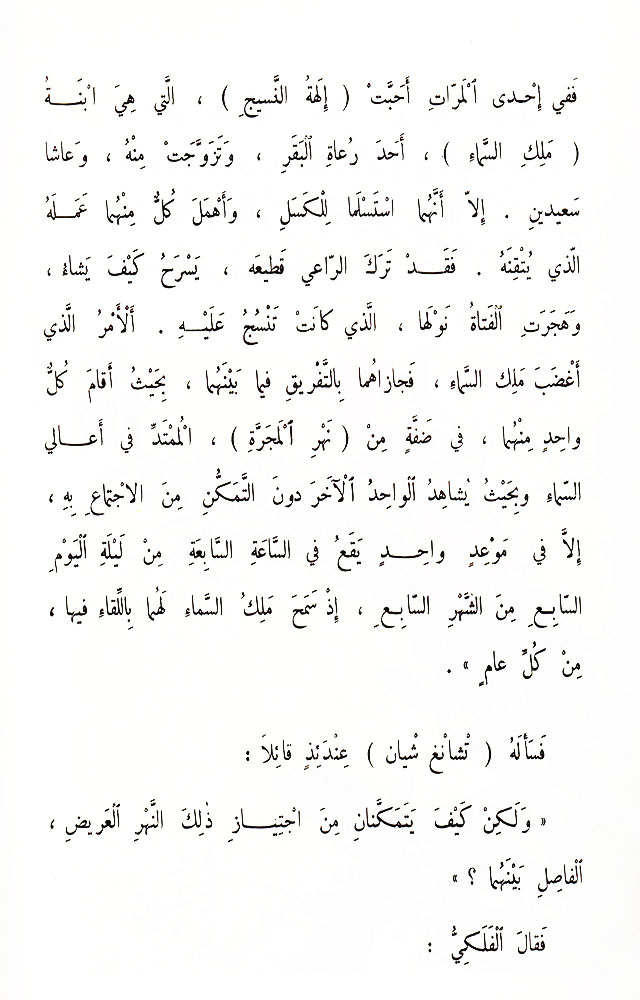 فَفي إِحْدى ٱلْمَرّاتِ أَحَبَّتْ ( إِلَهةُ النَّسيجِ ) ، الَّتي هِيَ ابْنَـــةُ
( مَلِكِ السَّماءِ ) ، أَحَدَ رُعاةِ ٱلْبَقَرِ ، وَتَزَوَّجَتْ مِنْهُ ، وَعاشا
سَعيدينِ . إِلاّ أَنَّهُما اسْتَسْلَما لِلْكَسَلِ ، وَأَهْمَلَ كُلٌّ مِنْهُما عَمَـلَهُ
الّذي يُتْقِنَهُ . فَقَـــدْ تَرَكَ الرّاعي قَطيعَه ، يَسْرَحُ كَيْفَ يَشاءُ ،
وَهَجَرَتِ ٱلْفَتاةُ نَوْلَها ، الَّذي كانَتْ تَنْسُجُ عَلَيْـــهِ . أَلْأَمْرُ الَّذي
أَغْضَبَ مَلِكَ السَّماءِ ، فَجازاهُما بِالتَّفْريقِ فيما بَيْنَهُما ، بِحَيْثُ أَقامَ كُلٌّ
واحِدٍ مِنْهُما ، في ضَفَّةٍ مِنْ ( نَهْرِ ٱلْمَجَرَّةِ ) ، الْمُمْتَدِّ في أَعـــالي
السَّماءِ وبِحَيْثُ يُشاهِدُ ٱلْواحِدُ ٱلْآخَرَ دونَ التَّمَكُّنِ مِنَ الاجْتِماعِ بِهِ ،
إِلاَّ في مَوْعِدٍ واحِـــدٍ يَقَعُ في السَّاعَةِ السَّابِعَةِ مِنْ لَيْلَةِ ٱلْيَوْمِ
السّابِـعِ مِنَ الشَّهْرِ السّابِـعِ ، إِذْ سَمَحَ مَلِكُ السَّماءِ لَهُما بِاللِّقاءِ فيها ،
مِنْ كُلِّ عامٍ » .
فَسَأَلَهُ ( تْشانْغ شْيان ) عِنْدَئِذٍ قائِلاً :
« وَلَكِنْ كَيْفَ يَتَمَكَّنانِ مِنَ اجْتِيـــازِ ذٰلِكَ النَّهْرِ ٱلْعَريضِ ،
ٱلْفاصِلِ بَيْنَهُما ؟ »
فَقالَ ٱلْفَلَـكِيُّ :